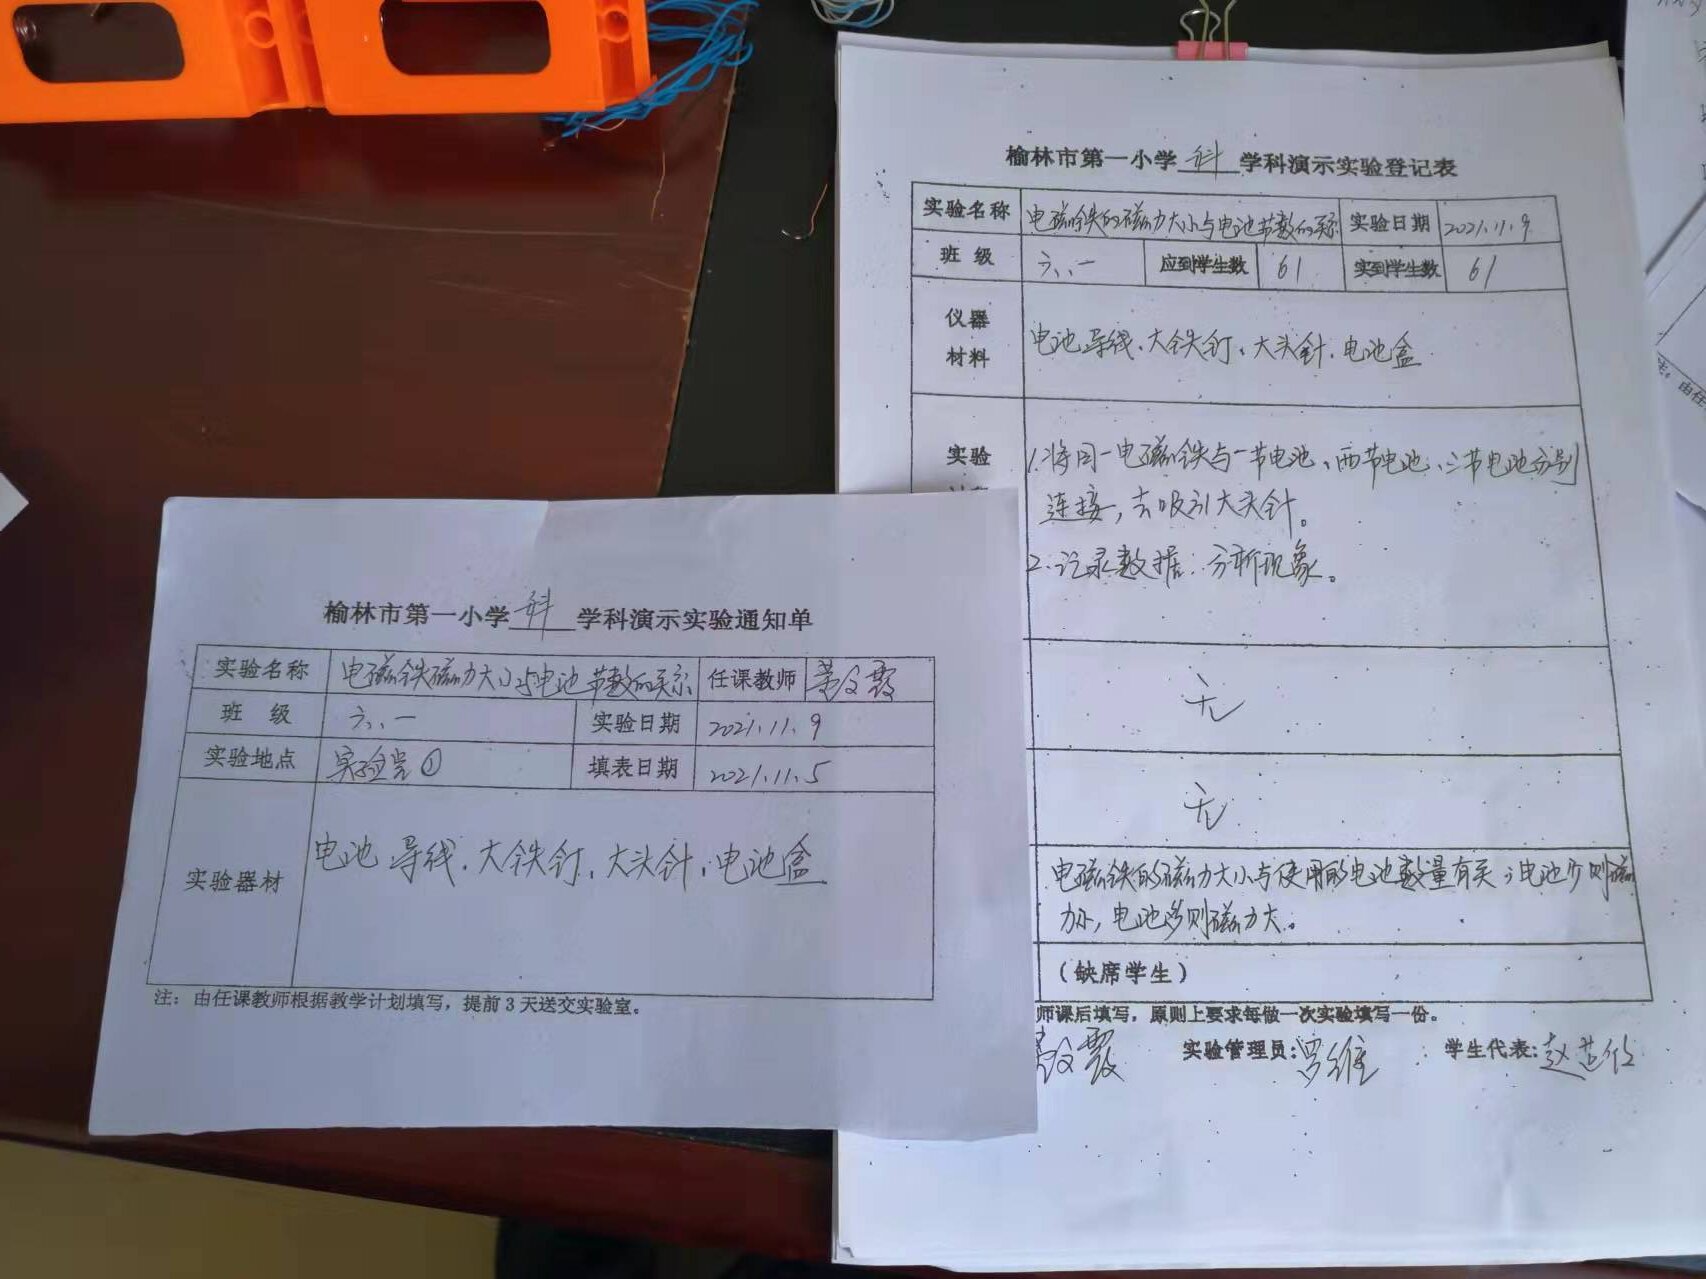 榆林市第一小学 科 学科演示实验通知单
实验名称 电磁铁磁力大小与电池节数的关系 任课教师 霞
班 级 六、一 实验日期 2021.11.9
实验地点 实验室① 填表日期 2021.11.5
实验器材 电池 导线、大铁钉、大头针、电池盒
注：由任课教师根据教学计划填写，提前3天送交实验室。
榆林市第一小学 科 学科演示实验登记表
实验名称 电磁铁的磁力大小与电池节数的关系 实验日期 2021.11.9
班 级 六、一 应到学生数 61 实到学生数 61
仪器
材料
电池 导线、大铁钉、大头针、电池盒
实验
1.将同一电磁铁与一节电池、两节电池、三节电池分别
连接，去吸引大头针。
2.记录数据：分析现象。
无
无
电磁铁的磁力大小与使用的电池数量有关；电池少则磁
力小，电池多则磁力大。
（缺席学生）
师课后填写，原则上要求每做一次实验填写一份。
霞 实验管理员：罗维 学生代表：赵
由任